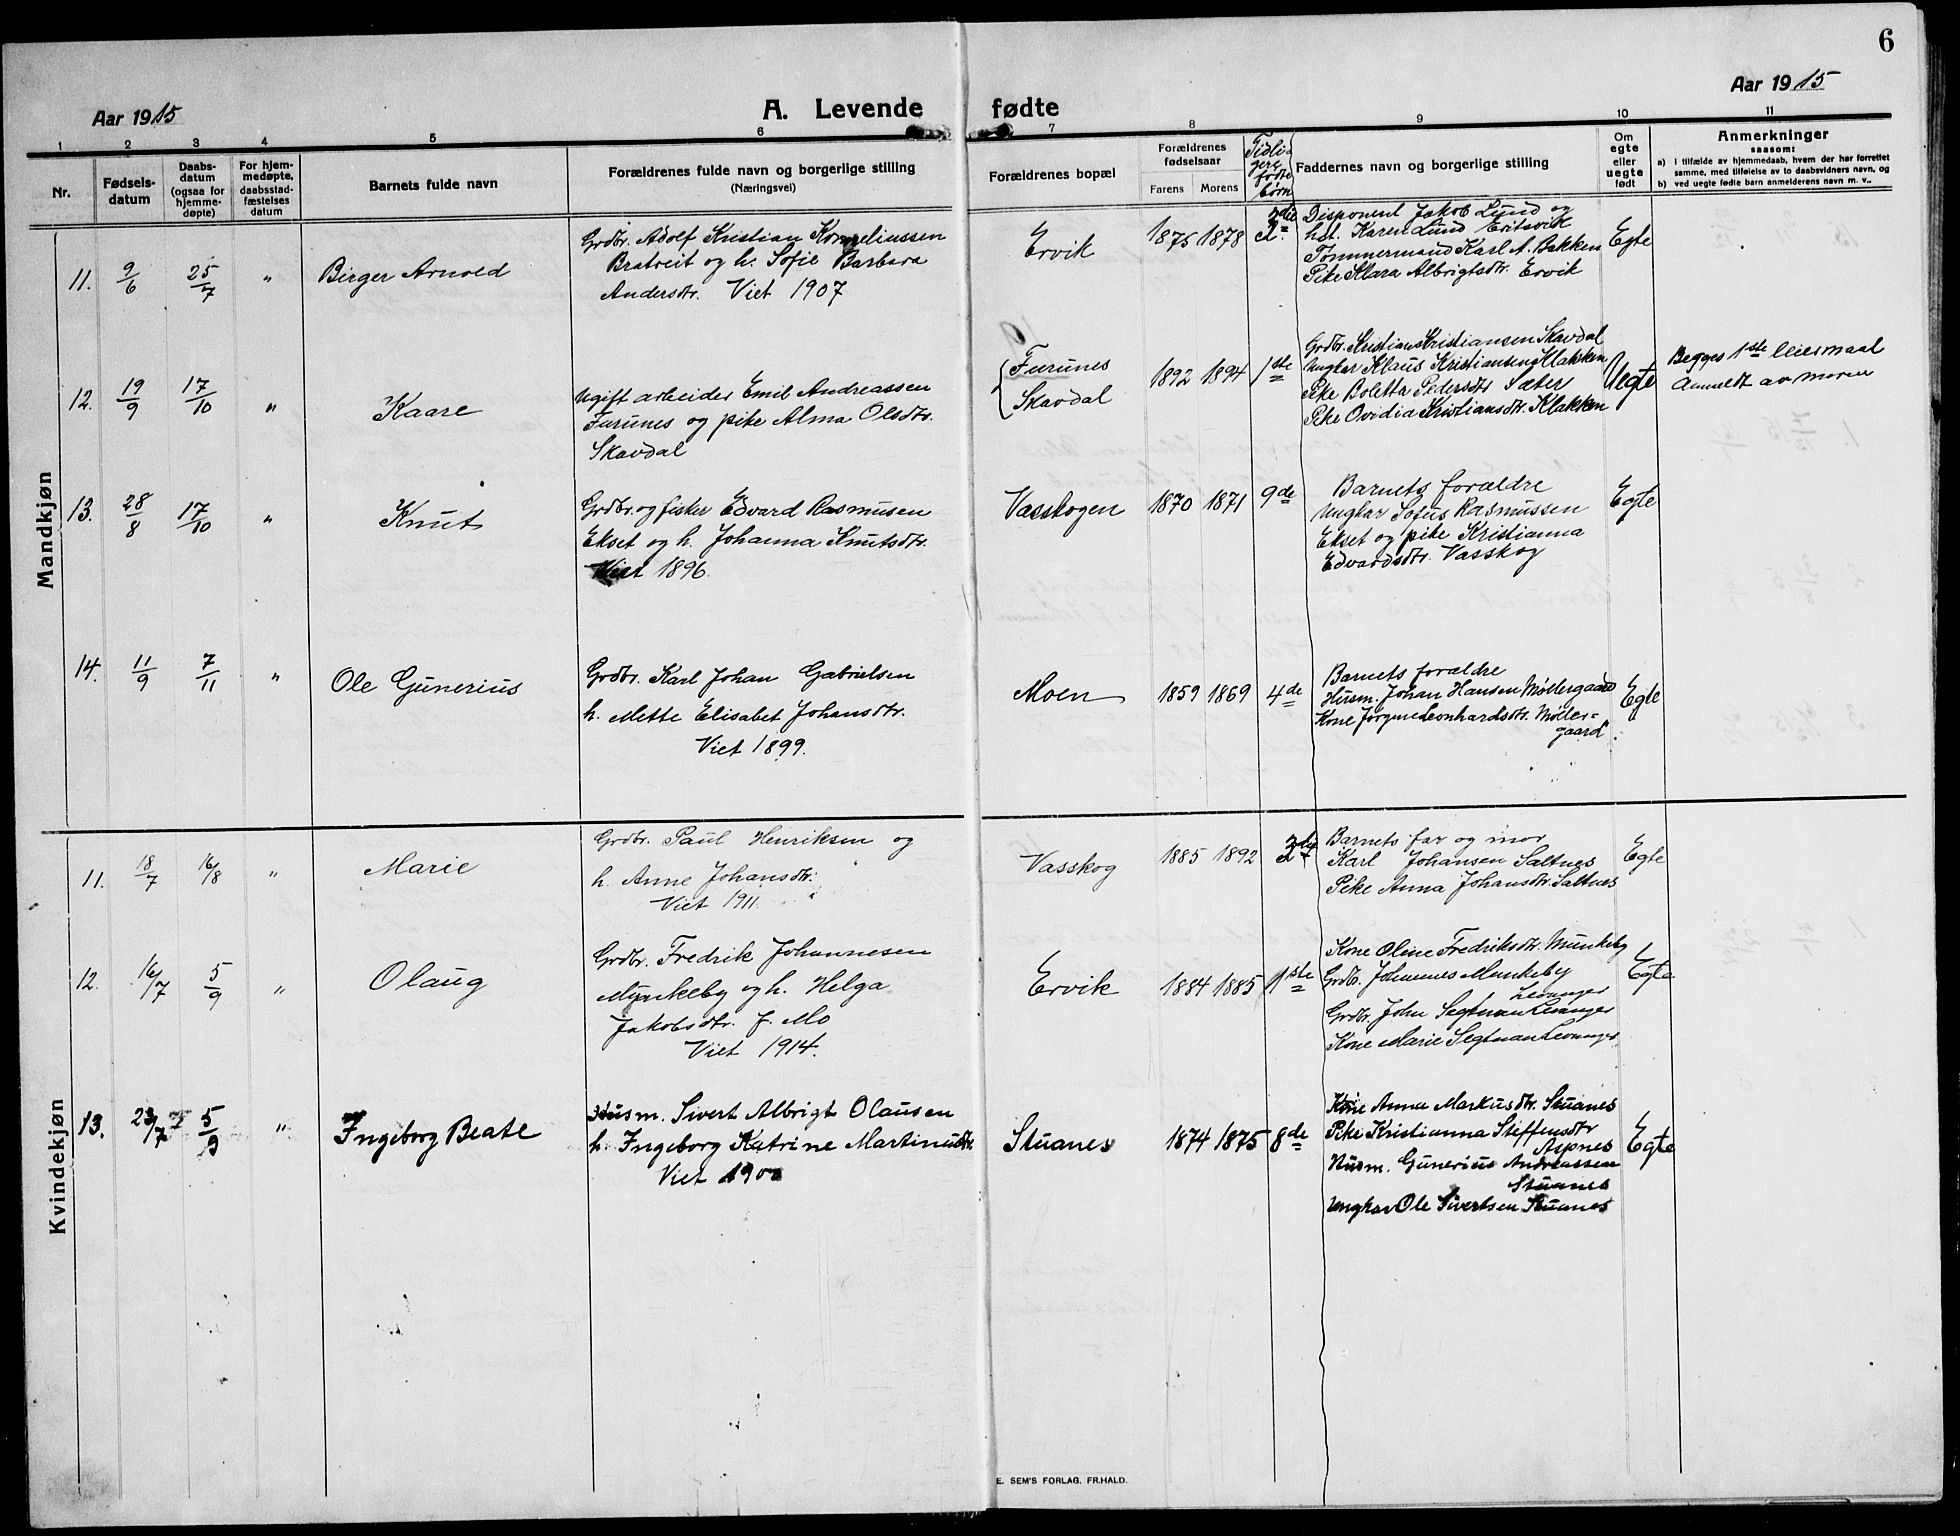 6
Aar 1915
A. Levende fødte
Aar 1915
1 2 3 4 5 6 7 8 9 10 11
Nr.
Fødsels-
datum
Daabs-
datum
(ogsaa for
hjemme-
døpte)
For hjem-
medøpte,
daabsstad-
fæstelses
datum
Barnets fulde navn
Forældrenes fulde navn og borgerlige stilling
(Næringsvei)
Forældrenes bopæl
Forældrenes
fødselsaar
Farens Morens
Tidli-
gere
fødte
børn
Faddernes navn og borgerlige stilling
Om
egte
eller
uegte
født
Anmerkninger
saasom:
a) i tilfælde av hjemmedaab, hvem der har forrettet
samme, med tilføielse av to daabsvidners navn, og
b) ved uegte fødte barn anmelderens navn m. v..
Mandkjøn
11. 9/6 25/7 " Birger Arnold
Grdbr. Adolf Kristian Korneliussen
Bratreit og h. Sofie Barbara
Andersdtr. Viet 1907
Ervik 1875 1878
Disponent Jakob Lund og
hst. Karen Lund Eritsvik
Tømmermand Karl A. Bakken
Pike Klara Albrigtsdtr. Ervik
Egte
12. 19/9 17/10 " Kaare
Ugift arbeider Emil Andreassen
Furunes og pike Alma Olsdtr.
Skavdal
Furunes
Skavdal
1892 1894 1ste
Grdbr. Kristian Kristiansen Skavdal
Ungkar Klaus Kristiansen Klakken
Pike Boletta Pedersdtr Sæter
Pike Ovidia Kristiansdtr. Klakken
Uegte
Begges 1ste leiermaal
Anmeldt av moren
13. 28/8 17/10 " Knut
Grdbr. og fisker Edvard Rasmusen
Ekset og h. Johanna Knutsdtr.
Viet 1896.
Vasskogen 1870 1871 9de
Barnets forældre
Ungkar Sofus Rasmussen
Ekset og pike Kristianna
Edvardsdtr. Vasskog
Egte
14. 11/9 7/11 " Ole Gunerius
Grdbr. Karl Johan Gabrielsen
h. Mette Elisabet Johansdtr.
Viet 1899.
Moen 1859 1869 4de
Barnets forældre
Husm. Johan Hansen Møllergaard
Kone Jørgine Leonhardsdtr. Møller-
gaard.
Egte
Kvindekjøn
11. 18/7 16/8 " Marie
Grdbr. Paul Henriksen og
h. Anne Johansdtr.
Viet 1911.
Vasskog 1885 1892
Barnets far og mor
Karl Johansen Saltnes
Pike Anna Johansdtr. Saltnes
Egte
12. 16/7 5/9 " Olaug
Grdbr. Fredrik Johannesen
Munkeby og h. Helga
Jakobsdtr. f. Mo
Viet 1914.
Ervik 1884 1885 1ste
Kone Oline Fredriksdtr. Munkeby
Grdbr. Johannes Munkeby
Levanger
Grdbr. John Segtnan Levanger
Kone Marie Segtnan Levanger.
Egte
13. 23/7 5/9 " Ingeborg Beate
Husm. Sivert Albrigt Olausen
h. Ingeborg Katrine Martinusdtr.
Viet 1900
Stuanes 1874 1875 8de
Kone Anna Markusdtr. Stuanes
Pike Kristianna Steffensdtr
Aspnes
Husm. Gunerius Andreassen
Stuanes
Ungkar Ole Sivertsen Stuanes
Egte
E. SEM'S FORLAG, FR.HALD.